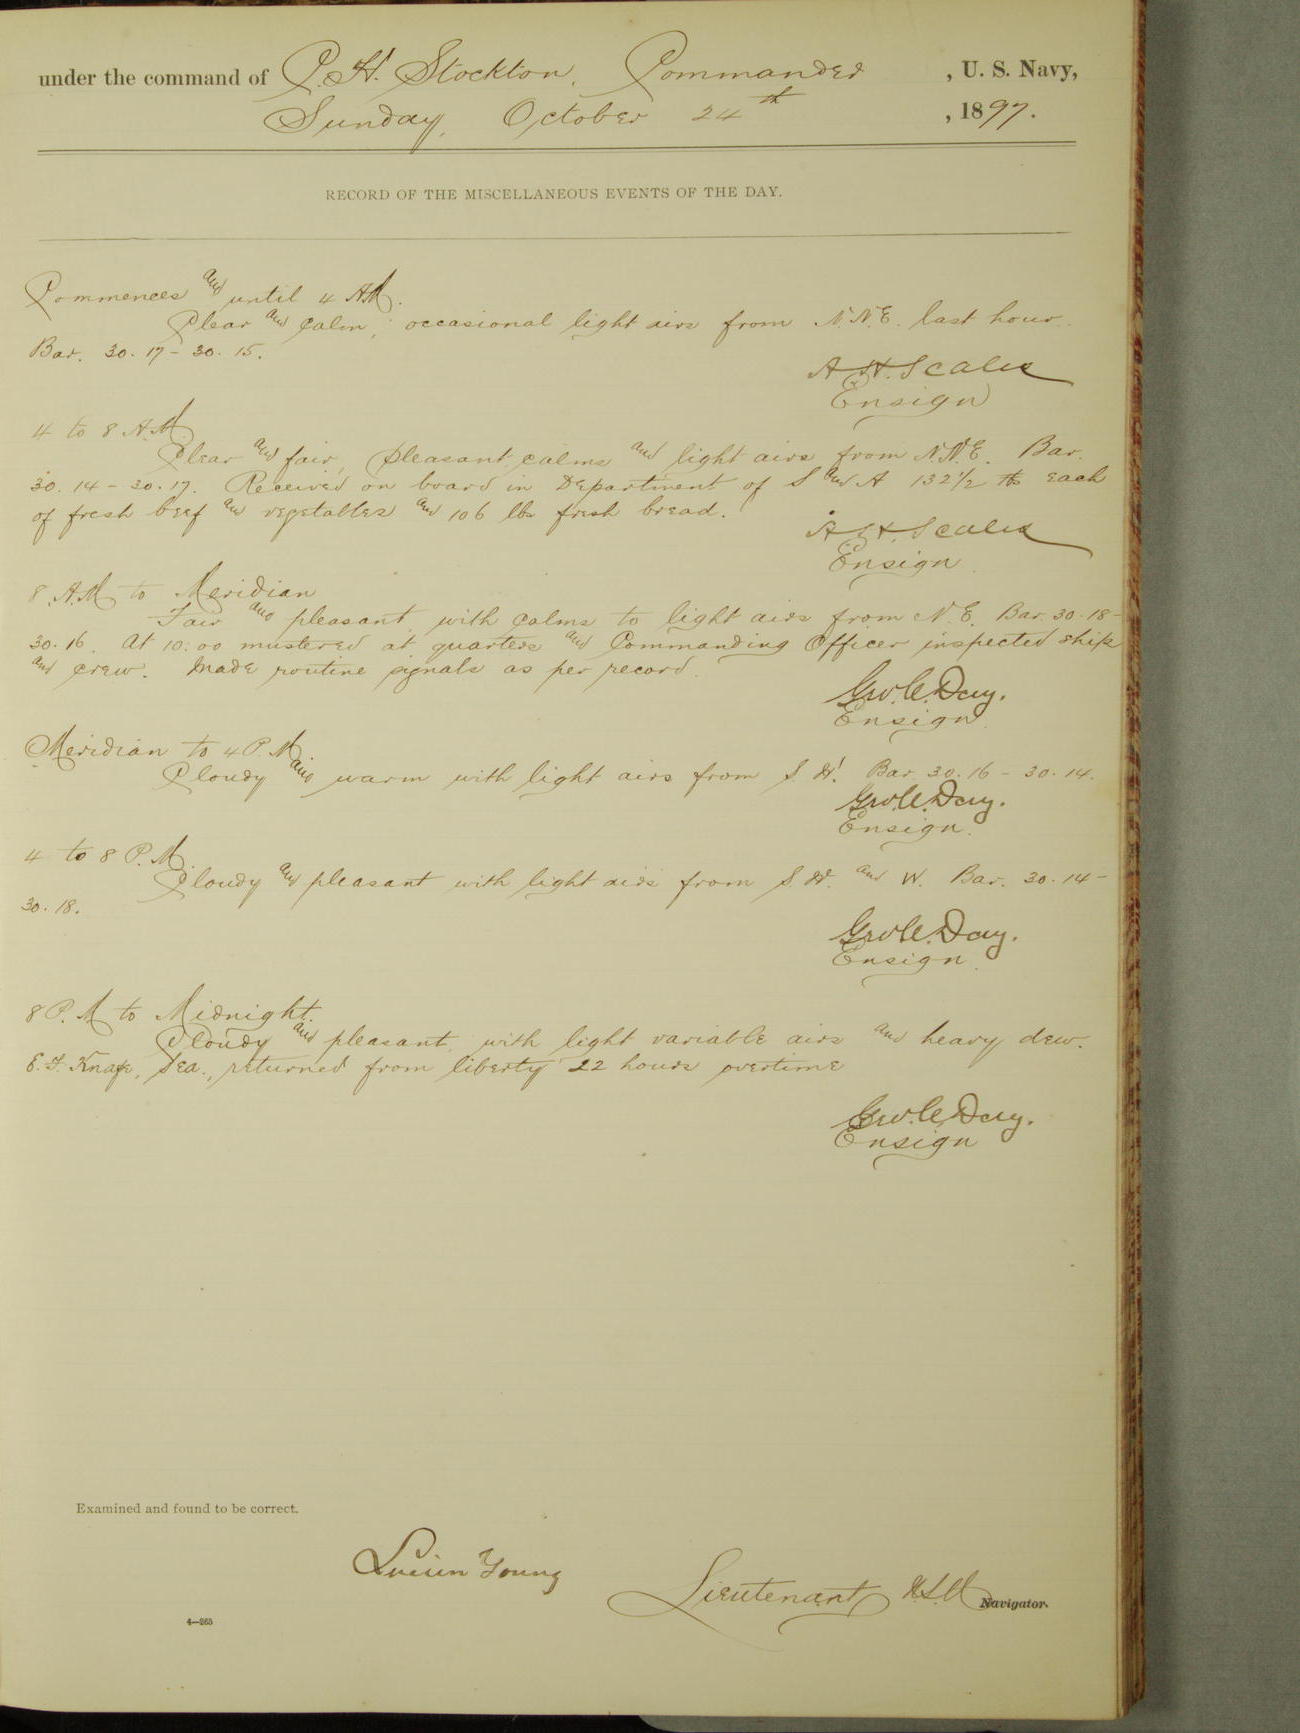 under the command of C. H. Stockton, Commander, U. S. Navy,
Sunday, October 24th, 1897.
RECORD OF THE MISCELLANEOUS EVENTS OF THE DAY.
Commences and until 4 AM.
Clear and calm; occasional light airs from N.N.E. last hour.
Bar. 30.17 - 30.15.
A H. Scales
Ensign
4 to 8 A.M.
Clear and fair, pleasant calms and light airs from N.N.E. Bar.
30.14 - 30.17. Received on board in Department of S and A 132 1/2 lbs each
of fresh beef and vegetables and 106 lbs fresh bread.
A H. Scales
Ensign
8 A.M to Meridian
Fair and pleasant with calms to light airs from N.E. Bar. 30.18 -
30.16. At 10:00 mustered at quarters and Commanding Officer inspected ship
and crew. Made routine signals as per record.
Geo. C. Day.
Ensign
Meridian to 4 P.M.
Cloudy and warm with light airs from S.W. Bar. 30.16 - 30.14.
Geo. C. Day.
Ensign.
4 to 8 P.M.
Cloudy and pleasant with light airs from S.W. and W. Bar. 30.14 -
30.18.
Geo. C. Day.
Ensign
8 P.M to Midnight.
Cloudy and pleasant, with light variable airs and heavy dew.
E. F. Knape, Sea., returned from liberty 22 hours overtime
Geo. C. Day.
Ensign
Examined and found to be correct.
Lucien Young
Lieutenant U.S.N. Navigator.
4—265